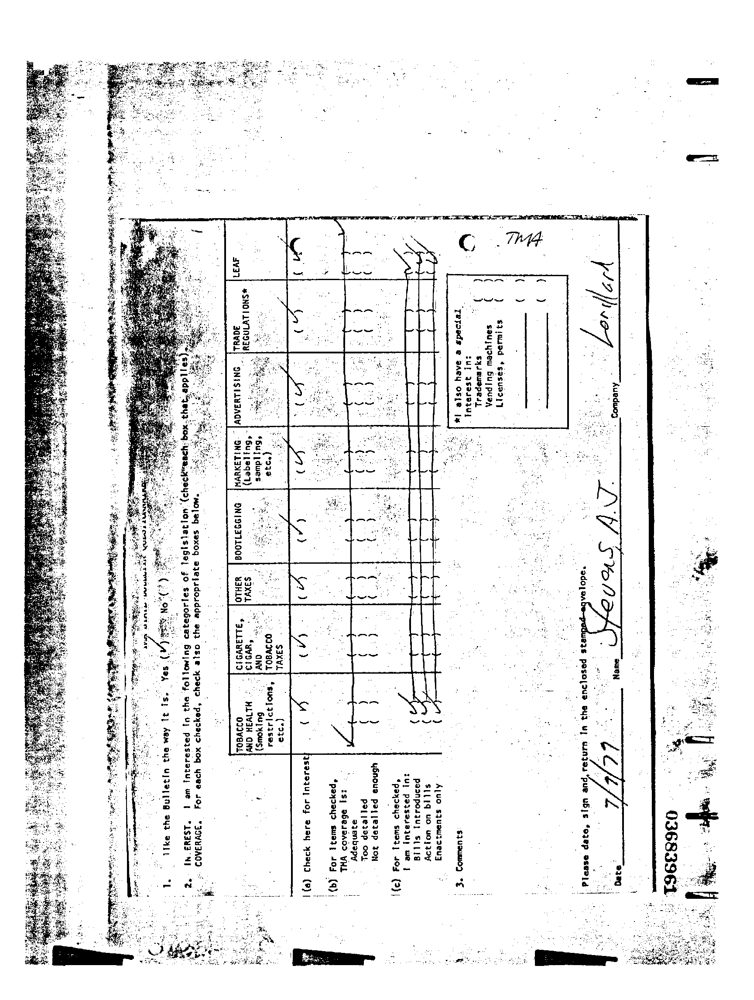 1. I like the Bulletin the way it is. Yes (✓) No ( )
2. INTEREST. I am interested in the following categories of legislation (check each box that applies).
COVERAGE. For each box checked, check also the appropriate boxes below.
TOBACCO AND HEALTH (Smoking restrictions, etc.)
CIGARETTE, CIGAR, AND TOBACCO TAXES
OTHER TAXES
BOOTLEGGING
MARKETING (Labeling, sampling, etc.)
ADVERTISING
TRADE REGULATIONS*
LEAF
(a) Check here for Interest (✓) (✓) (✓) (✓) (✓) (✓) (✓) (✓)
(b) For items checked,
TMA coverage is:
Adequate
Too detailed
Not detailed enough
(c) For items checked,
I am interested in:
Bills introduced
Action on bills
Enactments only
3. Comments
*I also have a special
interest in:
Trademarks ( )
Vending machines ( )
Licenses, permits ( )
TMA
Please date, sign and return in the enclosed stamped envelope.
Date 7/7/77 Name Stevens, A.J. Company Lorillard
03683961